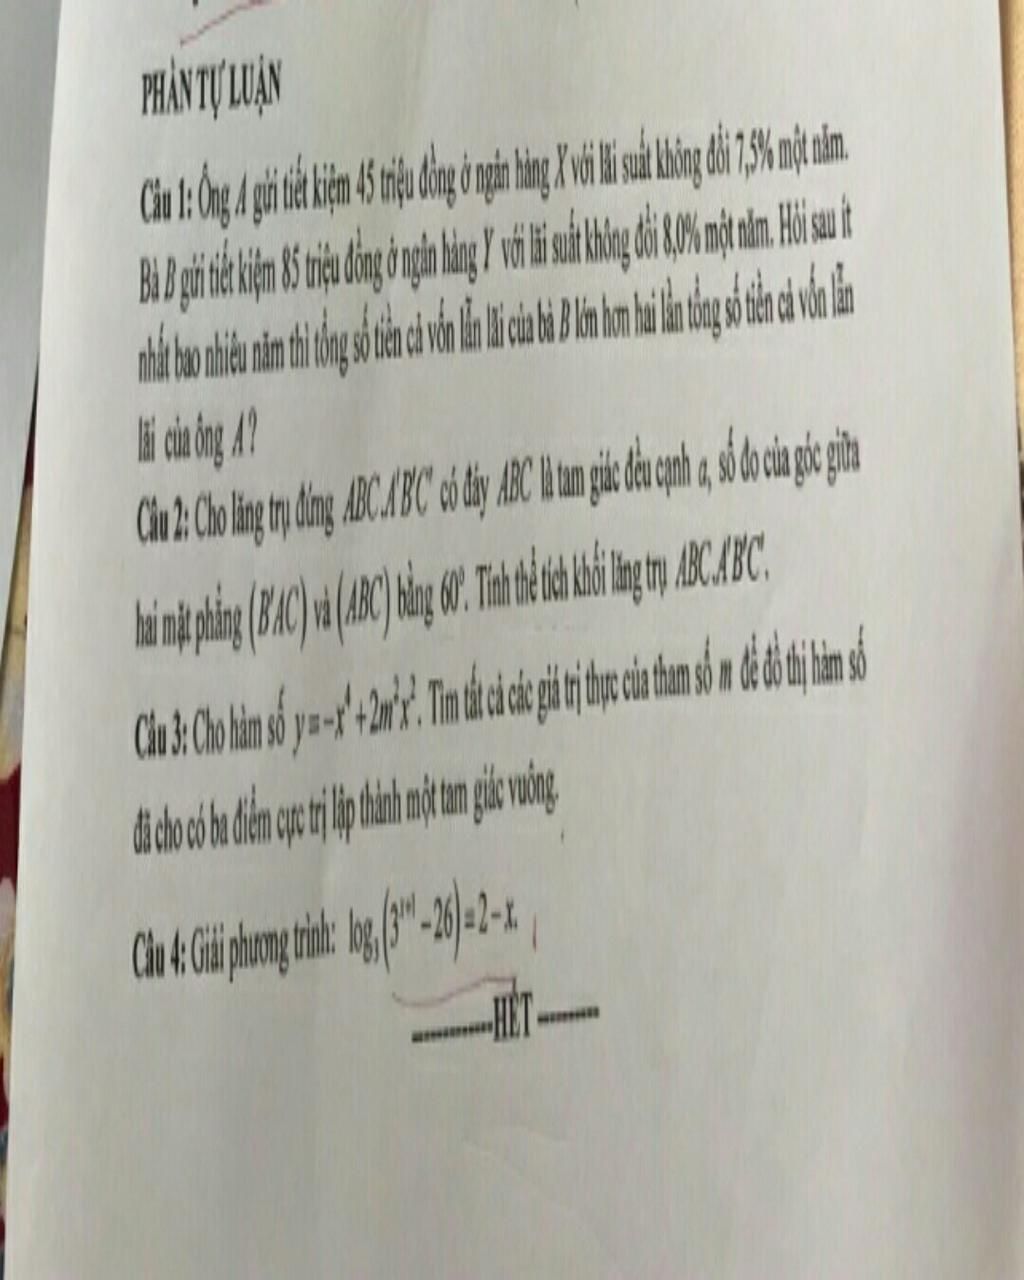 PHẦN TỰ LUẬN
Câu 1: Ông A gửi tiết kiệm 45 triệu đồng ở ngân hàng X với lãi suất không đổi 7,5% một năm.
Bà B gửi tiết kiệm 85 triệu đồng ở ngân hàng Y với lãi suất không đổi 8,0% một năm. Hỏi sau ít
nhất bao nhiêu năm thì tổng số tiền cả vốn lẫn lãi của bà B lớn hơn hai lần tổng số tiền cả vốn lẫn
lãi của ông A?
Câu 2: Cho lăng trụ đứng ABC.A'B'C' có đáy ABC là tam giác đều cạnh a, số đo của góc giữa
hai mặt phẳng (B'AC) và (ABC) bằng 60°. Tính thể tích khối lăng trụ ABC.A'B'C'.
Câu 3: Cho hàm số y=-x⁴+2m²x². Tìm tất cả các giá trị thực của tham số m để đồ thị hàm số
đã cho có ba điểm cực trị lập thành một tam giác vuông.
Câu 4: Giải phương trình: log₃(3ˣ⁺¹-26)=2-x.
----------HẾT--------